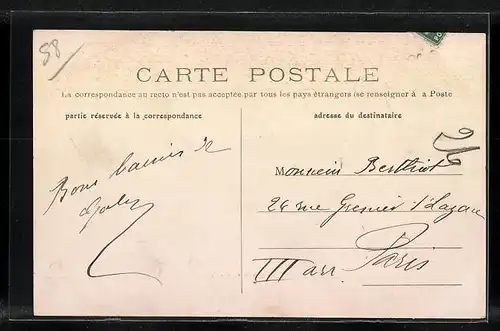 58
CARTE POSTALE
La correspondance au recto n'est pas acceptée par tous les pays étrangers (se renseigner à a Poste
partie réservée à la correspondance
adresse du destinataire
Bons baisers
Monsieur Berthiot
24 rue Grenier St Lazare
Paris
III arr.